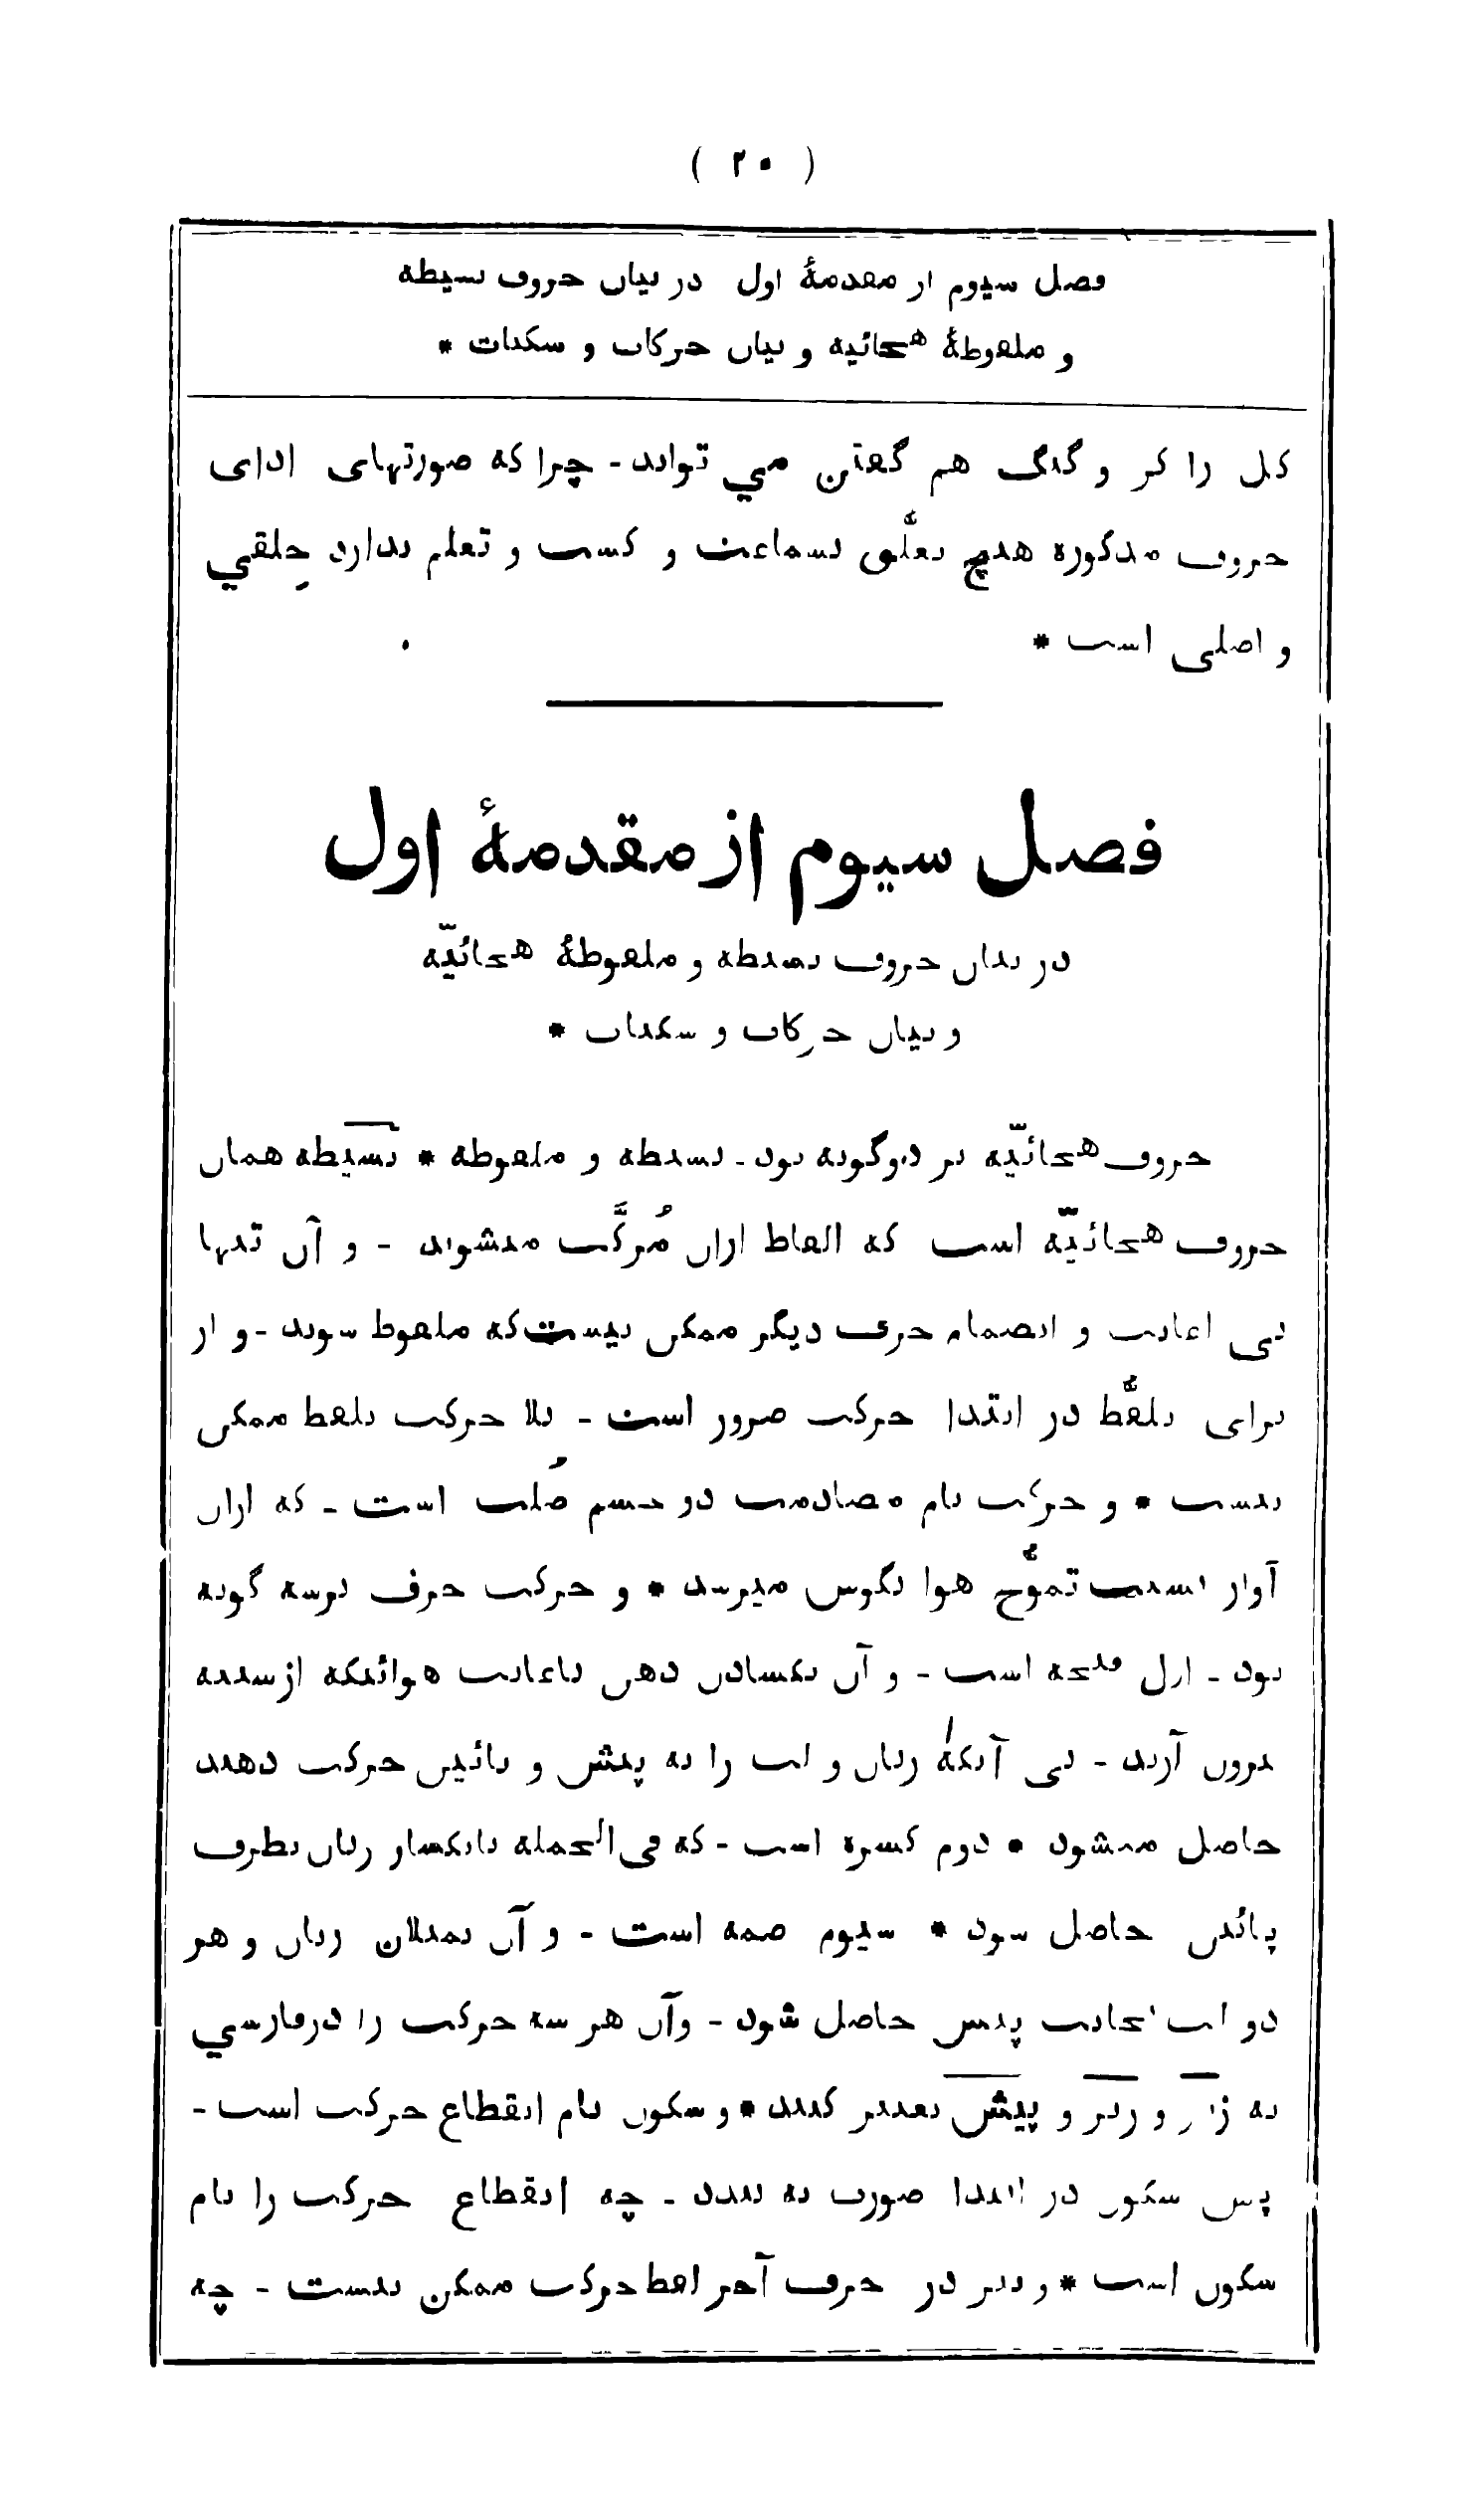 ( ۲۰ )
فصل سیوم از مقدمهٔ اول در بیان حروف بسیطه
و ملفوظهٔ هجائیه و بیان حرکات و سکنات *
کل را کر و گنگ هم گفتن می تواند - چرا که صورتهای ادای
حروف مذکوره هیچ تعلّق بسماعت و کسب و تعلم ندارد خِلقي
و اصلی است *
فصل سیوم از مقدمهٔ اول
در بیان حروف بسیطه و ملفوظهٔ هجائیّه
و بیان حرکات و سکنات *
حروف هجائیّه بر دوگونه بود - بسیطه و ملفوظه * بسیطه همان
حروف هجائیّه است که الفاظ ازان مُرکَّب میشوند - و آن تنها
بی اعانت و انضمام حرف دیگر ممکن نیست که ملفوظ شوند - و از
برای تلفُّظ در ابتدا حرکت ضرور است - بلا حرکت تلفظ ممکن
نیست * و حرکت نام مصادمت دو جسم صُلب است - که ازان
آواز بسبب تموُّج هوا بگوش میرسد * و حرکت حرف برسه گونه
بود - اول فتحه است - و آن بکشادن دهن باعانت هوائیکه از سینه
برون آرند - بی آنکهٔ زبان و لب را به پیش و پائین حرکت دهند
حاصل میشود * دوم کسره است - که فی الجمله بانکسار زبان بطرف
پائین حاصل شود * سیوم ضمه است - و آن بمیلان زبان و هر
دو لب بجانب پیش حاصل شود - وآن هر سه حرکت را درفارسي
به زبر و زیر و پیش تعبیر کنند * و سکون نام انقطاع حرکت است -
پس سکون در ابتدا صورت نه بندد - چه انقطاع حرکت را نام
سکون است * و نیز در حرف آخر لفظ حرکت ممکن نیست - چه